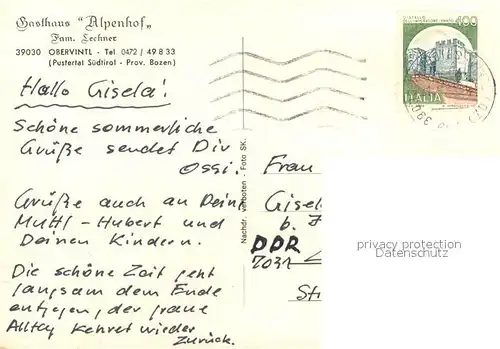 Gasthaus "Alpenhof"
Fam. Lechner
39030 OBERVINTL - Tel. 0472 / 49 8 33
(Pustertal Südtirol - Prov. Bozen)
Hallo Gisela!
Schöne sommerliche
Grüße sendet Dir
Ossi.
Grüße auch an Deine
Mutti - Hubert und
Deinen Kindern.
Die schöne Zeit geht
langsam dem Ende
entgegen, der graue
Alltag kehret wieder
zurück.
Nachdr. verboten - Foto SK.
400
ITALIA
Frau
Gisel
b.
DDR
7031
St
privacy protection
Datenschutz